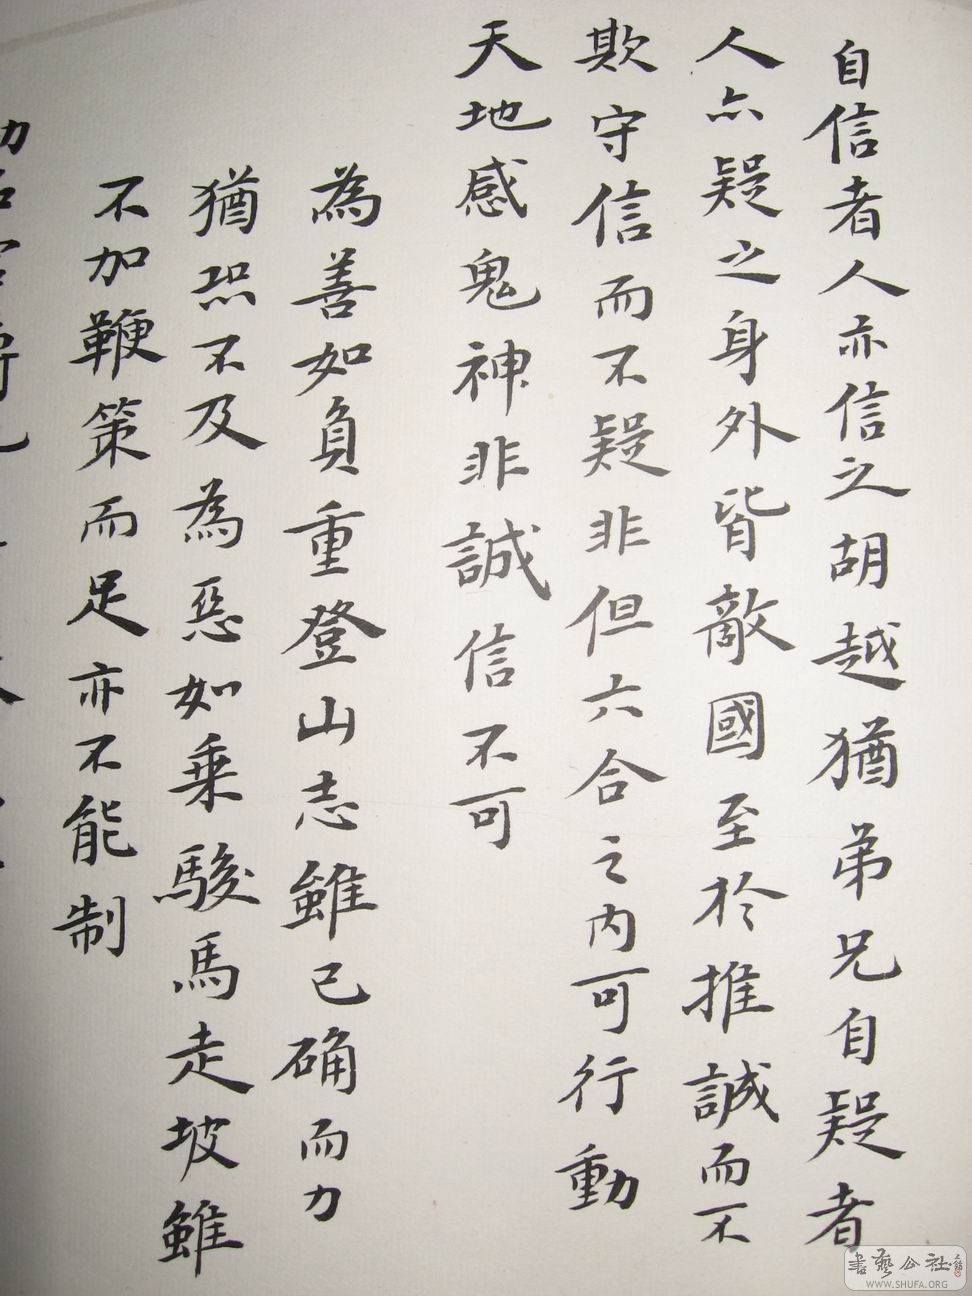 自信者人亦信之胡越猶弟兄自疑者
人亦疑之身外皆敵國至於推誠而不
欺守信而不疑非但六合之内可行動
天地感鬼神非誠信不可
為善如負重登山志雖已确而力
猶恐不及為惡如乗駿馬走坡雖
不加鞭策而足亦不能制
書藝公社
WWW.SHUFA.ORG